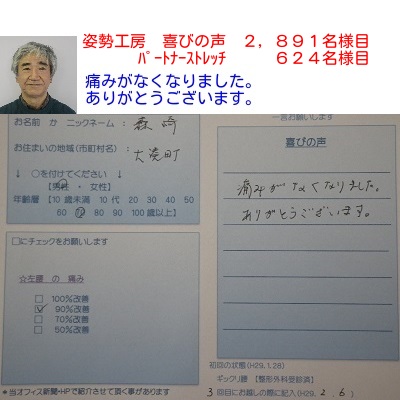 姿勢工房 喜びの声 2,891名様目
ﾊﾟｰﾄﾅｰｽﾄﾚｯﾁ 624名様目
痛みがなくなりました。
ありがとうございます。
お名前 か ニックネーム: 森崎
お住まいの地域(市町村名):
大湊町
↓ ○を付けてください ↓
【男性 ・ 女性】
年齢層 【10歳未満 10代 20 30 40 50
60 70 80 90 100歳以上】
□にチェックをお願いします
☆左腰 の 痛み
□ 100%改善
☑ 90%改善
□ 70%改善
□ 50%改善
*当オフィス新聞・HPで紹介させて頂く事があります
一言お願いします
喜びの声
痛みがなくなりました。
ありがとうございます。
初回の状態(H29.1.28)
ギックリ腰 【整形外科受診済】
3回目にお越しの際に記入(H29. 2. 6)